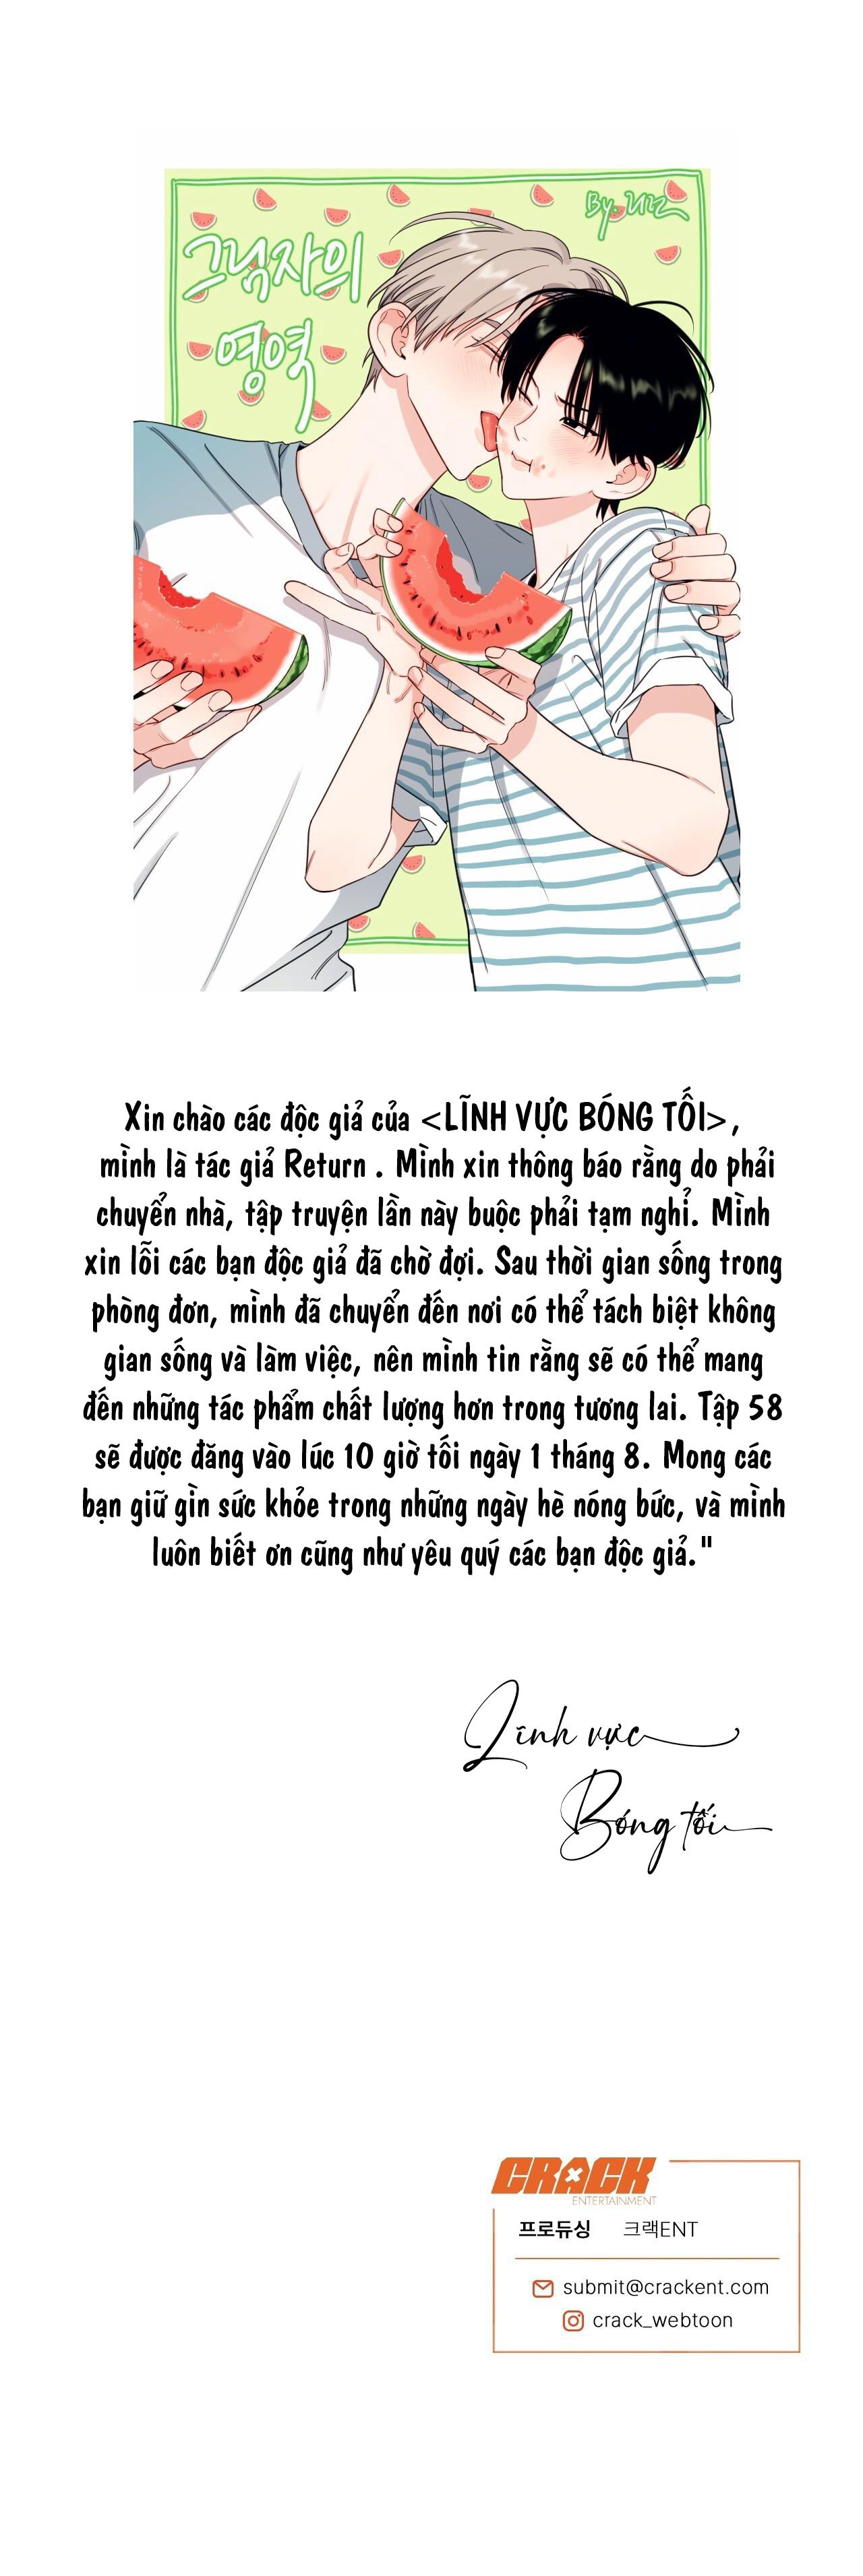 그림자의
영역
By. 리턴
Xin chào các độc giả của <LĨNH VỰC BÓNG TỐI>,
mình là tác giả Return . Mình xin thông báo rằng do phải
chuyển nhà, tập truyện lần này buộc phải tạm nghỉ. Mình
xin lỗi các bạn độc giả đã chờ đợi. Sau thời gian sống trong
phòng đơn, mình đã chuyển đến nơi có thể tách biệt không
gian sống và làm việc, nên mình tin rằng sẽ có thể mang
đến những tác phẩm chất lượng hơn trong tương lai. Tập 58
sẽ được đăng vào lúc 10 giờ tối ngày 1 tháng 8. Mong các
bạn giữ gìn sức khỏe trong những ngày hè nóng bức, và mình
luôn biết ơn cũng như yêu quý các bạn độc giả."
Lĩnh vực
Bóng tối
CRACK
ENTERTAINMENT
프로듀싱 크랙ENT
submit@crackent.com
crack_webtoon